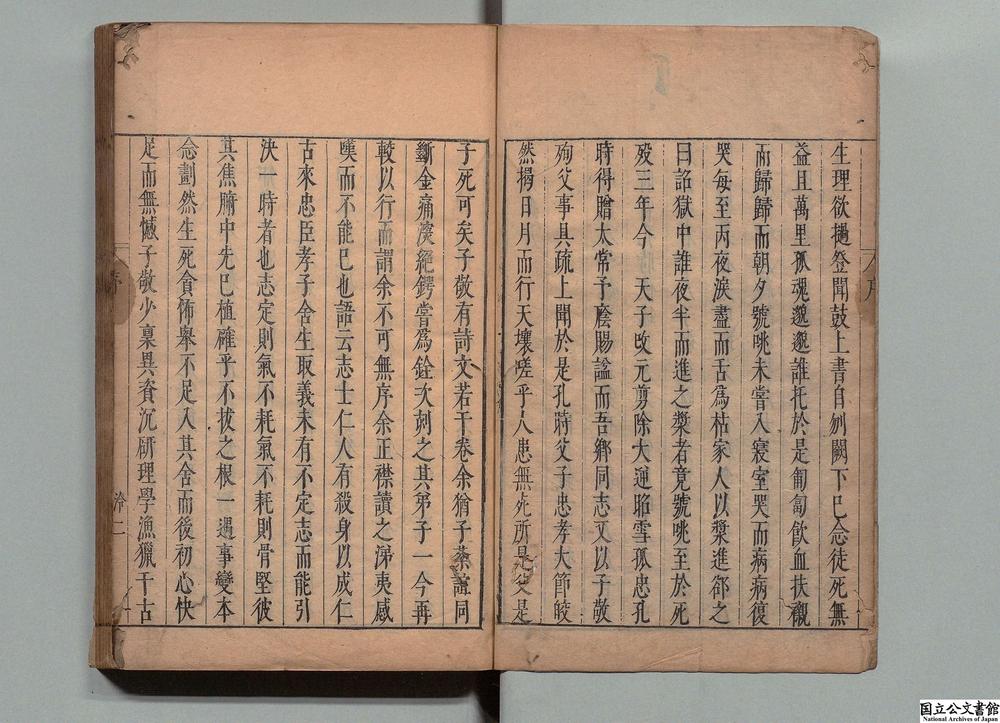 生理欲撾登聞鼓上書自刎闕下已念徒死無
益且萬里孤魂邈邈誰托於是匍匐飲血扶櫬
而歸歸而朝夕號咷未嘗入寢室哭而病病復
哭每至丙夜淚盡而舌為枯家人以漿進郤之
曰詔獄中誰夜半而進之漿者竟號咷至於死
歿三年今 天子改元剪除大逆昭雪孤忠孔
時得贈太常予廕賜諡而吾鄉同志又以子敬
殉父事具疏上聞於是孔時父子忠孝大節皎
然揭日月而行天壤嗟乎人患無死所是父是
子死可矣子敬有詩文若干卷余猶子棻誼同
斷金痛深絕鍔嘗為銓次刻之其弟子一今再
較以行而謂余不可無序余正襟讀之涕夷感
嘆而不能已也語云志士仁人有殺身以成仁
古來忠臣孝子舍生取義未有不定志而能引
決一時者也志定則氣不耗氣不耗則骨堅彼
其焦腑中先已植確乎不拔之根一遇事變本
念劃然生死貪怖舉不足入其舍而後初心快
足而無憾子敬少稟異資沉研理學漁獵千古
序
國立公文書館
National Archives of Japan